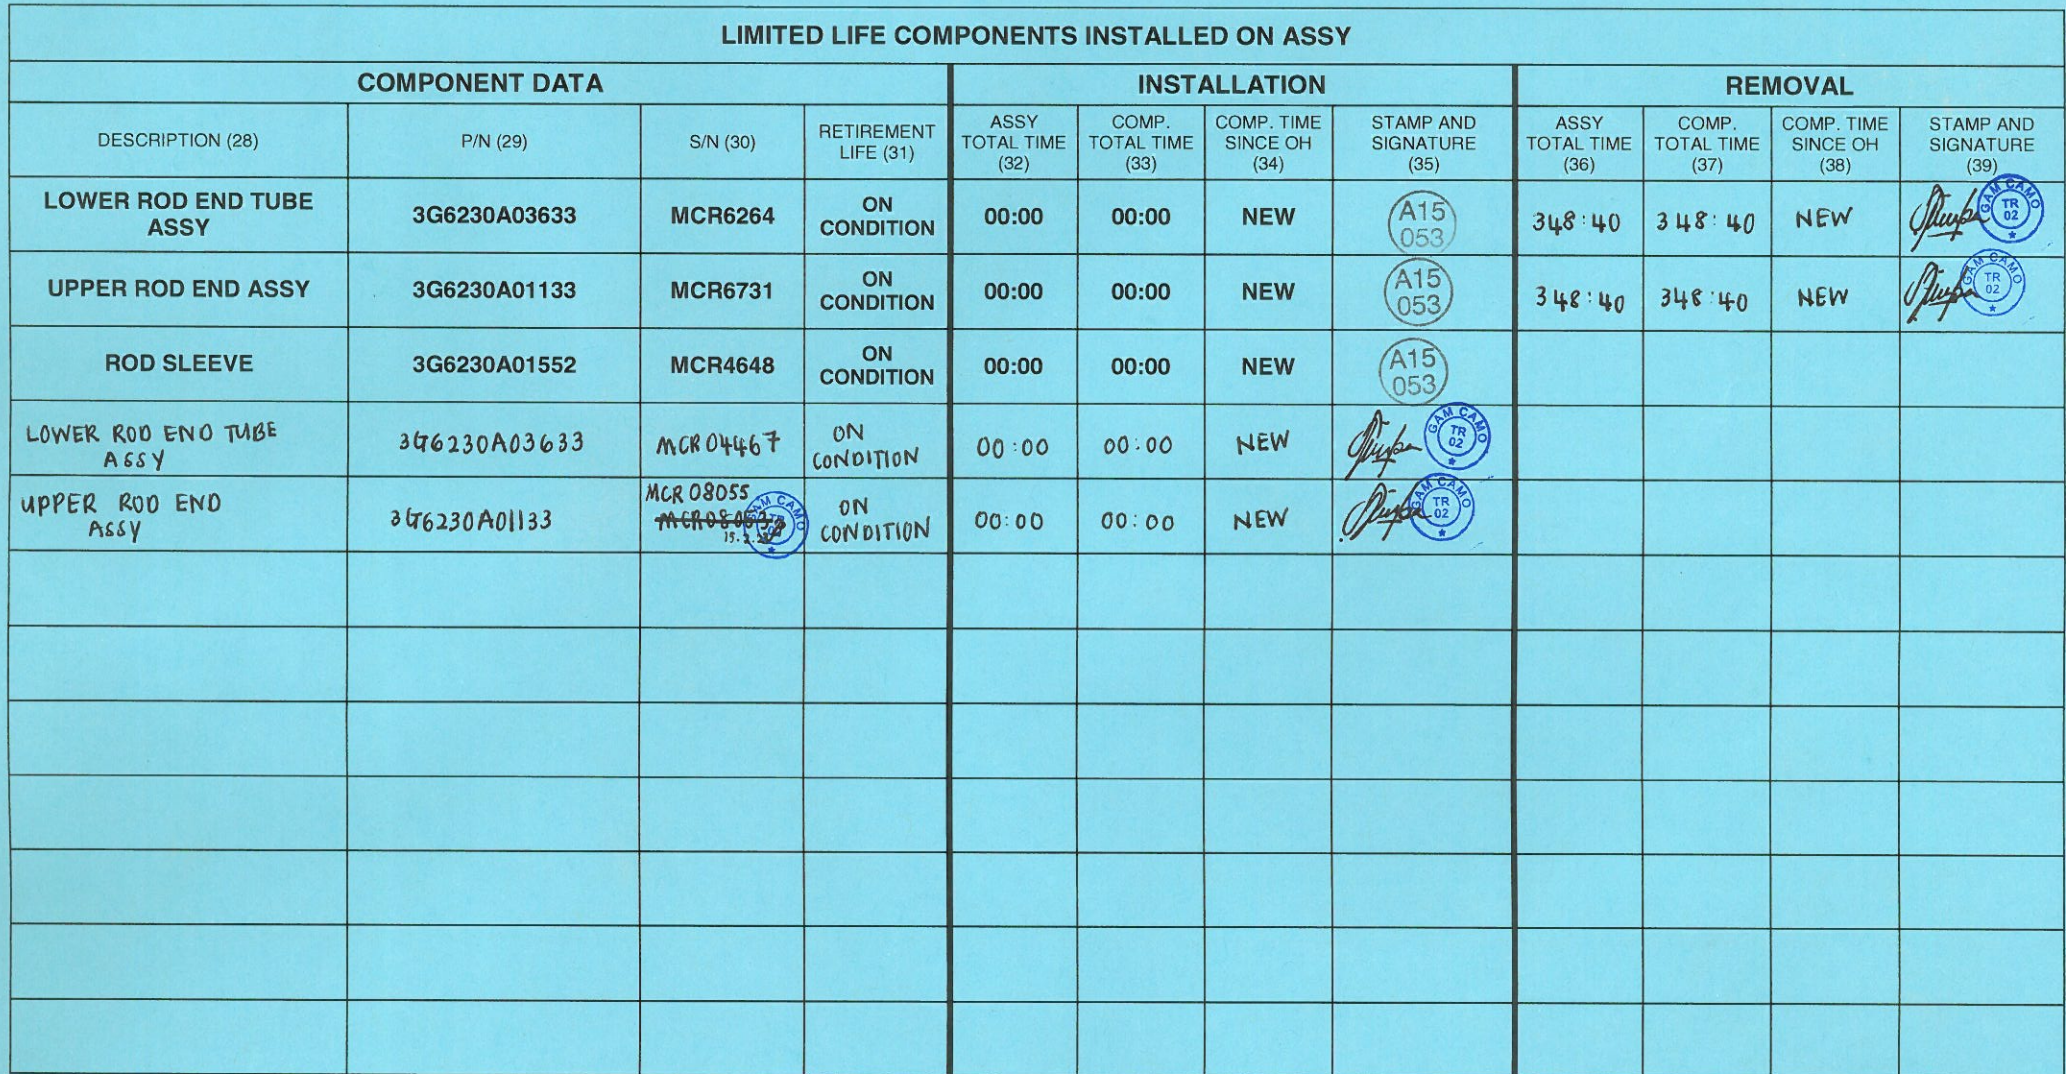 LIMITED LIFE COMPONENTS INSTALLED ON ASSY
COMPONENT DATA INSTALLATION REMOVAL
DESCRIPTION (28) P/N (29) S/N (30) RETIREMENT LIFE (31) ASSY TOTAL TIME (32) COMP. TOTAL TIME (33) COMP. TIME SINCE OH (34) STAMP AND SIGNATURE (35) ASSY TOTAL TIME (36) COMP. TOTAL TIME (37) COMP. TIME SINCE OH (38) STAMP AND SIGNATURE (39)
LOWER ROD END TUBE ASSY 3G6230A03633 MCR6264 ON CONDITION 00:00 00:00 NEW A15 053 348:40 348:40 NEW GAM CAMO TR 02
UPPER ROD END ASSY 3G6230A01133 MCR6731 ON CONDITION 00:00 00:00 NEW A15 053 348:40 348:40 NEW GAM CAMO TR 02
ROD SLEEVE 3G6230A01552 MCR4648 ON CONDITION 00:00 00:00 NEW A15 053
LOWER ROD END TUBE ASSY 3G6230A03633 MCR04467 ON CONDITION 00:00 00:00 NEW GAM CAMO TR 02
UPPER ROD END ASSY 3G6230A01133 MCR08055 ON CONDITION 00:00 00:00 NEW GAM CAMO TR 02